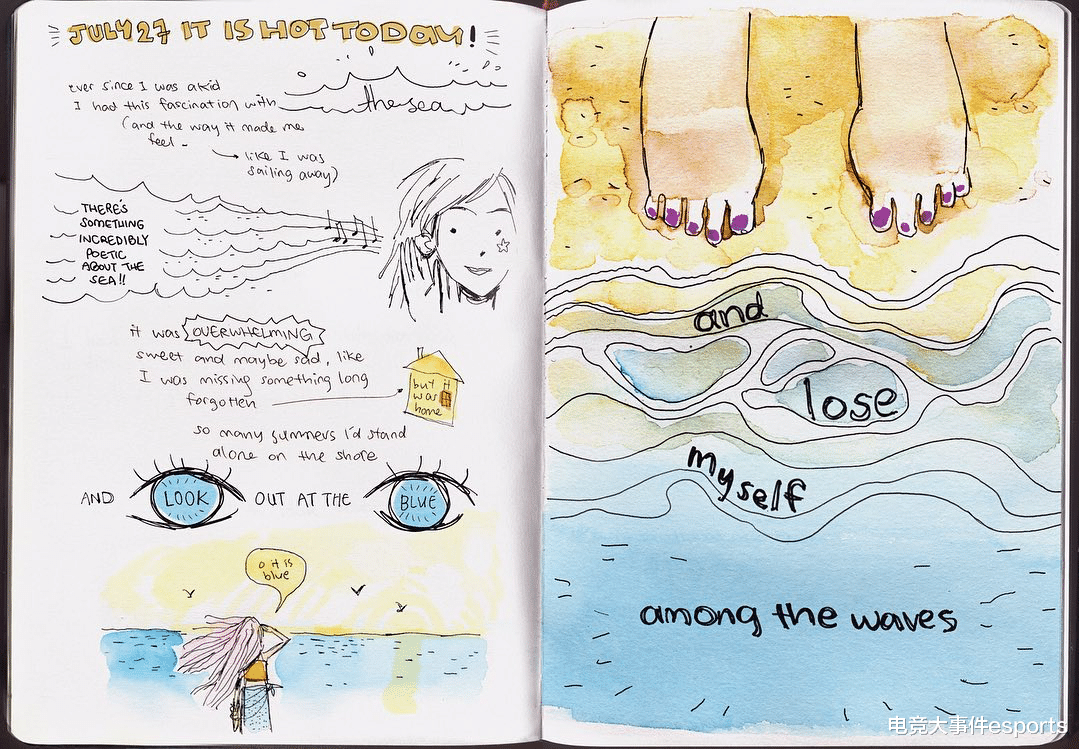 JULY 27 IT IS HOT TODAY!
ever since I was a kid
I had this fascination with
the sea
(and the way it made me
feel -
like I was
sailing away)
THERE'S
SOMETHING
INCREDIBLY
POETIC
ABOUT THE
SEA!!
it was OVERWHELMING
sweet and maybe sad, like
I was missing something long
forgotten
but it
was
home
so many summers I'd stand
alone on the shore
AND LOOK OUT AT THE BLUE
o it is
blue
and
lose
myself
among the waves
电竞大事件esports